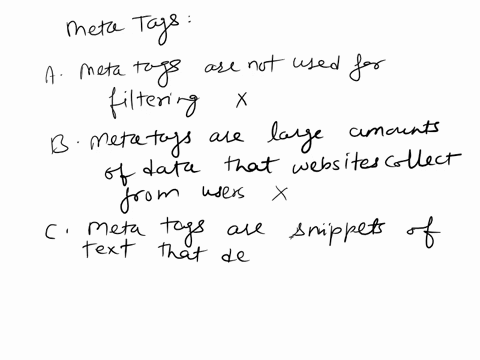 Meta Tags:
A. Meta tags are not used for
filtering X
B. Metatags are large amounts
of data that websites collect
from users X
C. Meta tags are snippets of
text that de